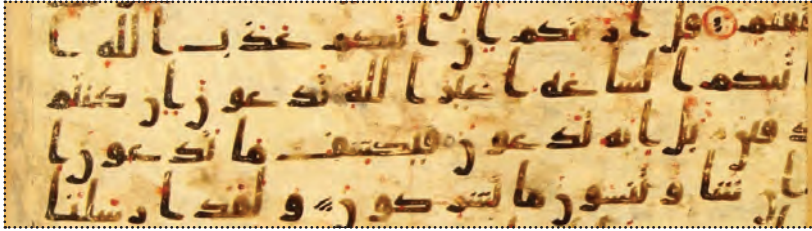 قل اريتكم ان اتيكم عذب الله ا
تتكم الساعه اغير الله تدعون ان كنتم
دقين بل اياه تدعون فيكشف ما تدعون ا
ان شا و تنسون ما تشركون و لقد ارسلنا